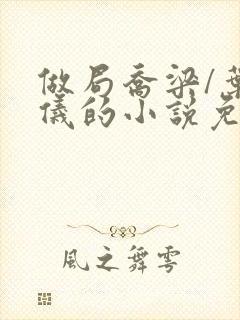 做局喬梁/葉
儀的小說免
風之舞雩